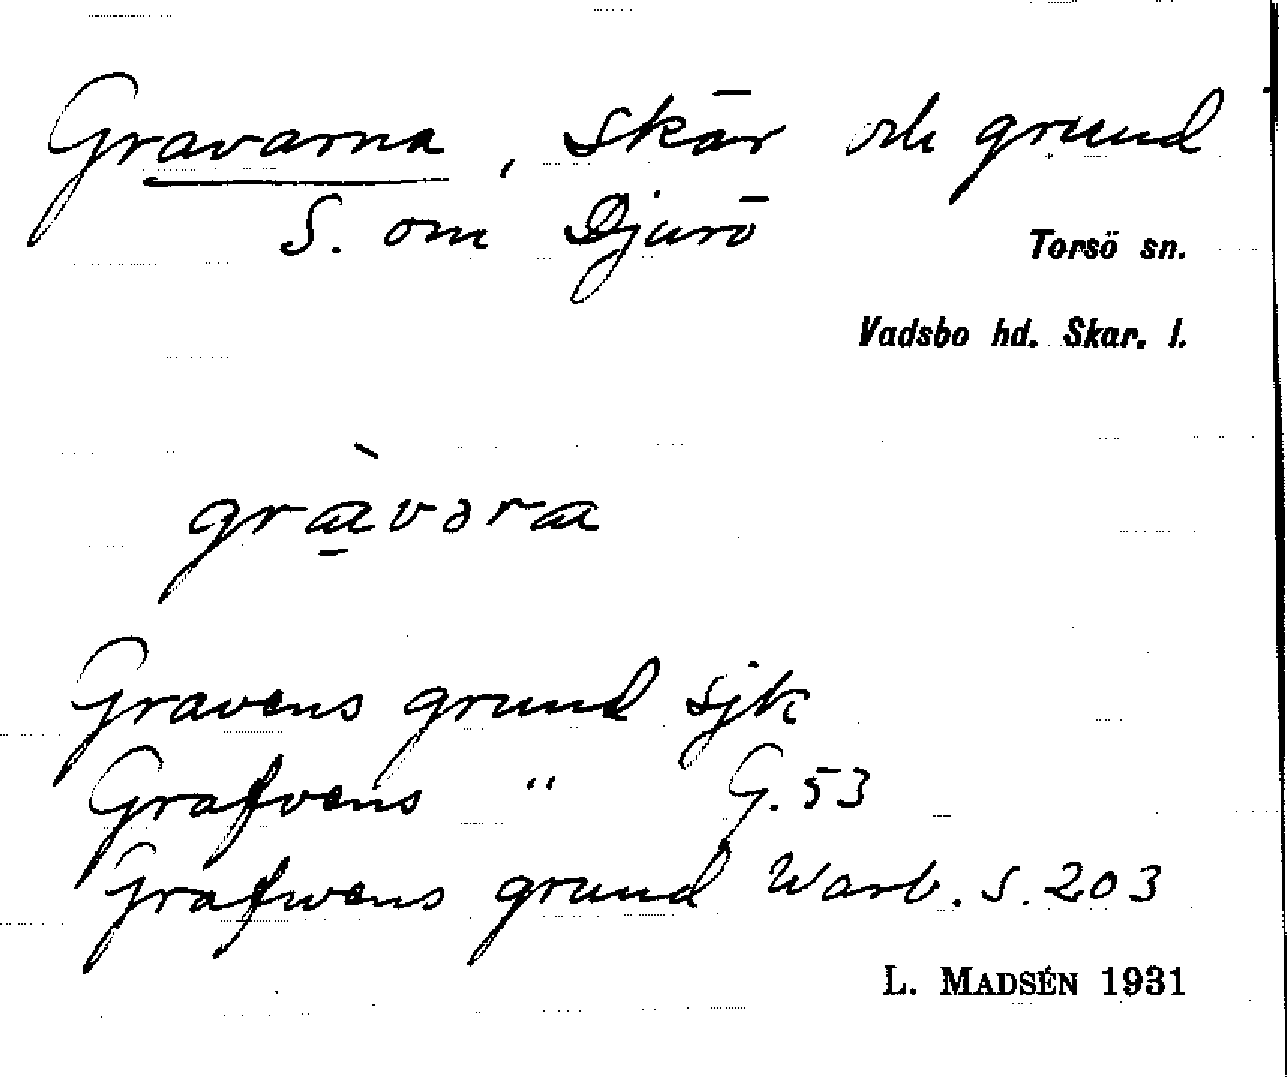 Gravarna, skär och grund
S. om Djurö
Torsö sn.
Vadsbo hd. Skar. l.
gràvəra
Gravens grund sjk
Grafvens " G. 53
Grafwens grund Warb. S. 203
L. MADSÉN 1931